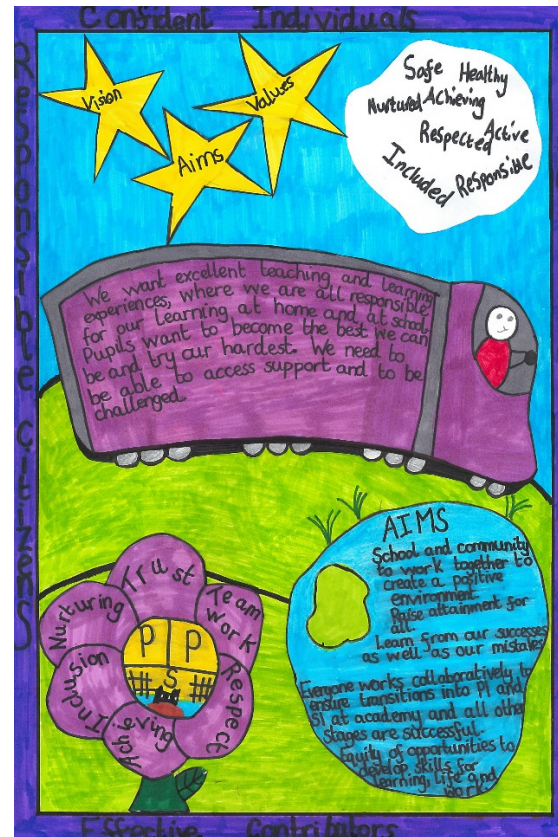 Confident Individuals
Responsible Citizens
Vision
Values
Aims
Safe Healthy
Nurtured Achieving
Respected Active
Included Responsible
We want excellent teaching and learning
experiences, where we are all responsible
for our learning at home and at school.
Pupils want to become the best we can
be and try our hardest. We need to
be able to access support and to be
challenged.
AIMS
School and community
to work together to
create a positive
environment.
Raise attainment for
all.
Learn from our successes
as well as our mistakes
Everyone works collaboratively to
ensure transitions into P1 and
S1 at academy and all other
stages are successful.
Equity of opportunities to
develop skills for
learning, life and
work.
Trust
Team
work
Respect
Achieving
Inclusion
Nurturing
P P
S
Effective Contributors